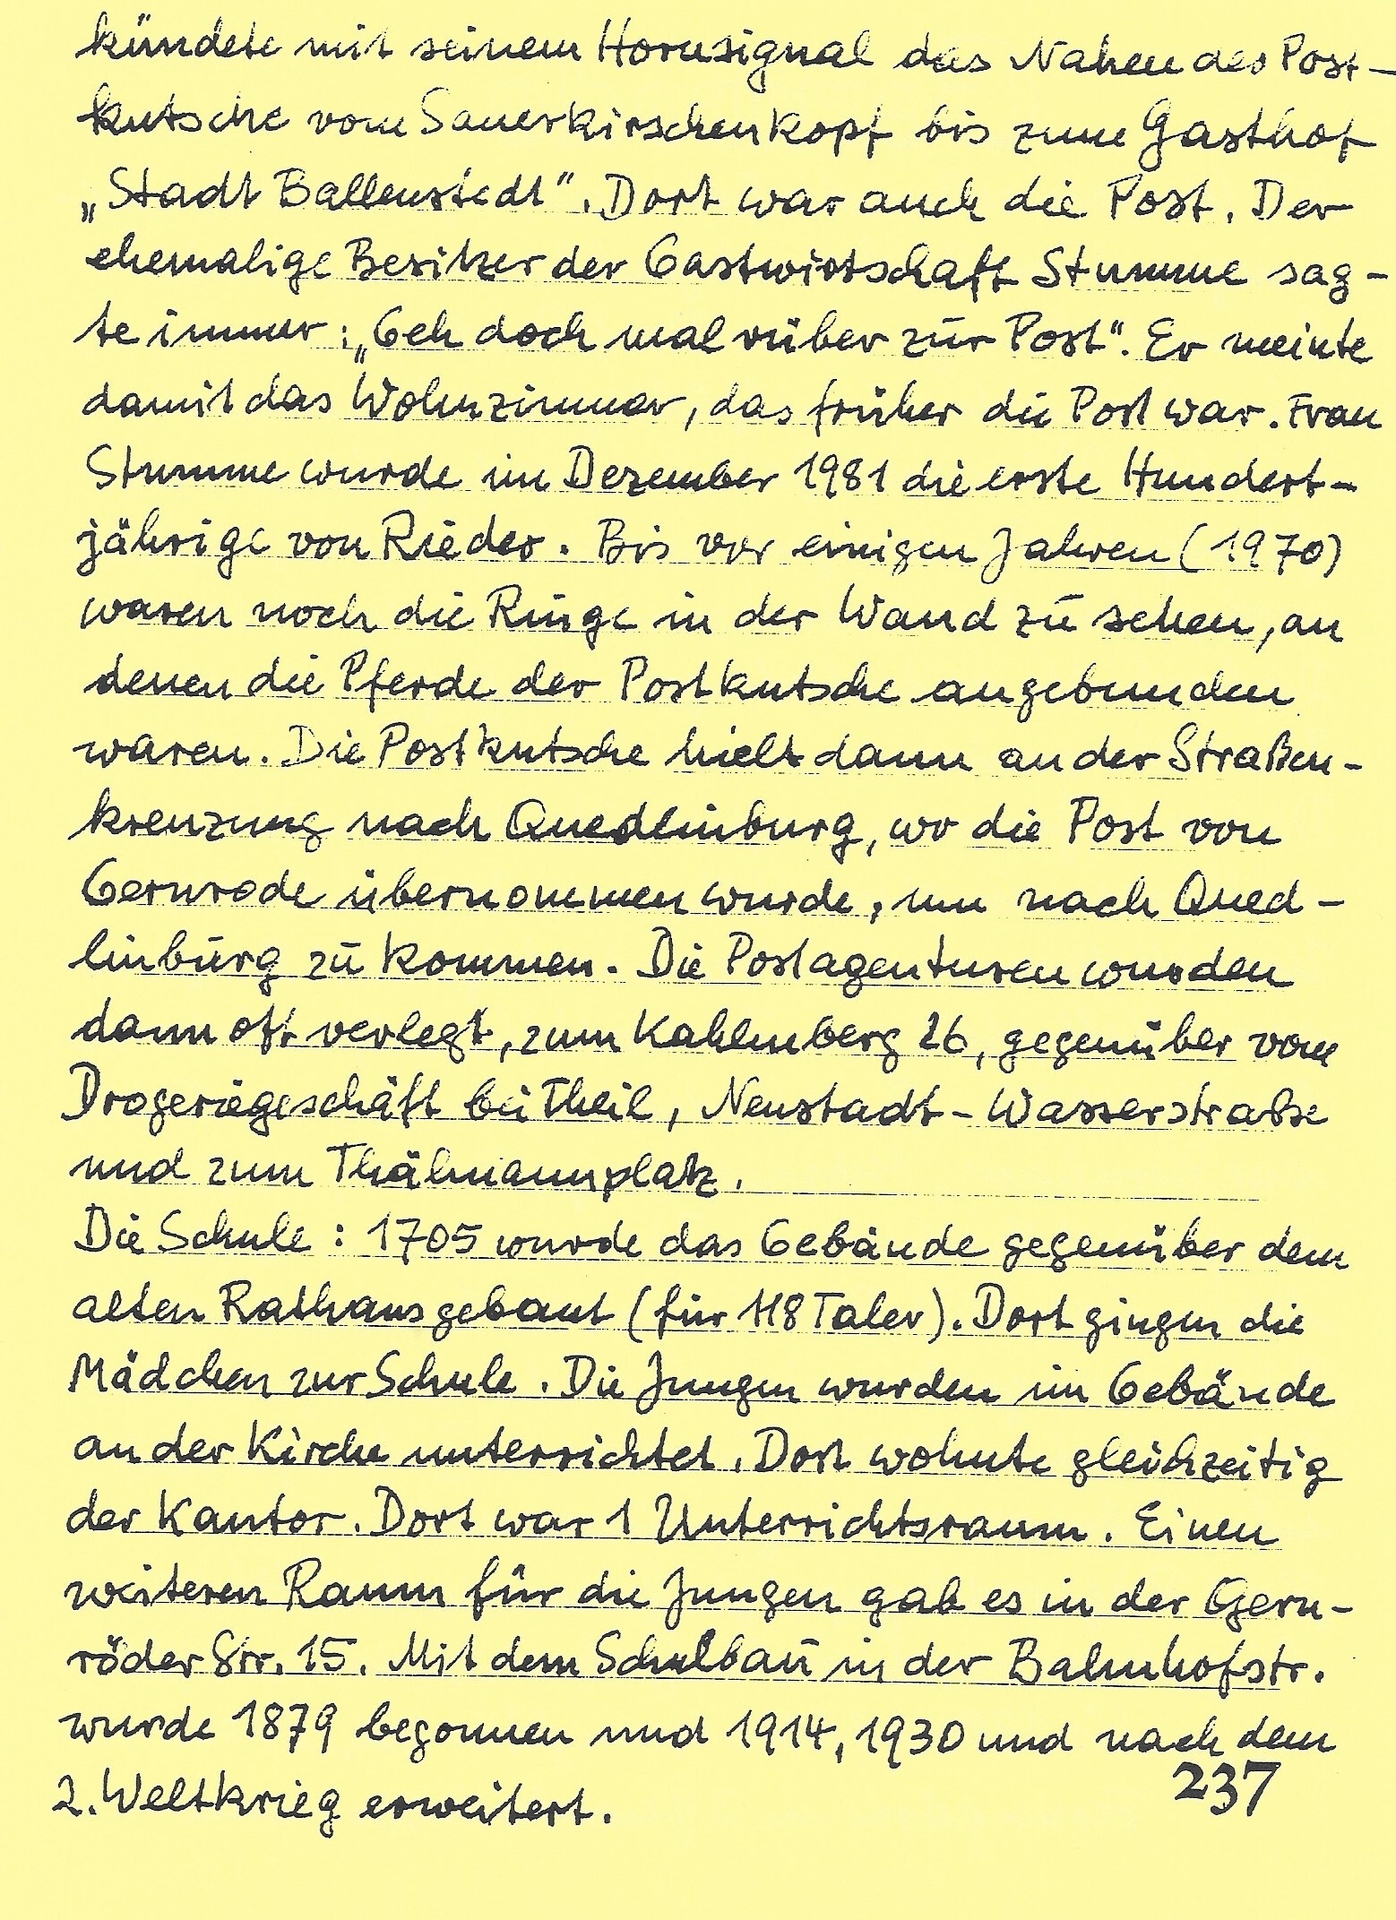 kündete mit seinem Hornsignal das Nahen der Post-
kutsche vom Sauerkirschenkopf bis zum Gasthof
„Stadt Ballenstedt". Dort war auch die Post. Der
ehemalige Besitzer der Gastwirtschaft Stumme sag-
te immer: „Geh doch mal rüber zur Post". Er meinte
damit das Wohnzimmer, das früher die Post war. Frau
Stumme wurde im Dezember 1981 die erste Hundert-
jährige von Rieder. Bis vor einigen Jahren (1970)
waren noch die Ringe in der Wand zu sehen, an
denen die Pferde der Postkutsche angebunden
waren. Die Postkutsche hielt dann an der Straßen-
kreuzung nach Quedlinburg, wo die Post von
Gernrode übernommen wurde, um nach Qued-
linburg zu kommen. Die Postagenturen wurden
dann oft verlegt, zum Kahlenberg 26, gegenüber vom
Drogeriegeschäft bei Theil, Neustadt-Wasserstraße
und zum Thälmannplatz.
Die Schule: 1705 wurde das Gebäude gegenüber dem
alten Rathaus gebaut (für 118 Taler). Dort gingen die
Mädchen zur Schule. Die Jungen wurden im Gebäude
an der Kirche unterrichtet. Dort wohnte gleichzeitig
der Kantor. Dort war 1 Unterrichtsraum. Einen
weiteren Raum für die Jungen gab es in der Gern-
röder Str. 15. Mit dem Schulbau in der Bahnhofstr.
wurde 1879 begonnen und 1914, 1930 und nach dem
2. Weltkrieg erweitert.
237